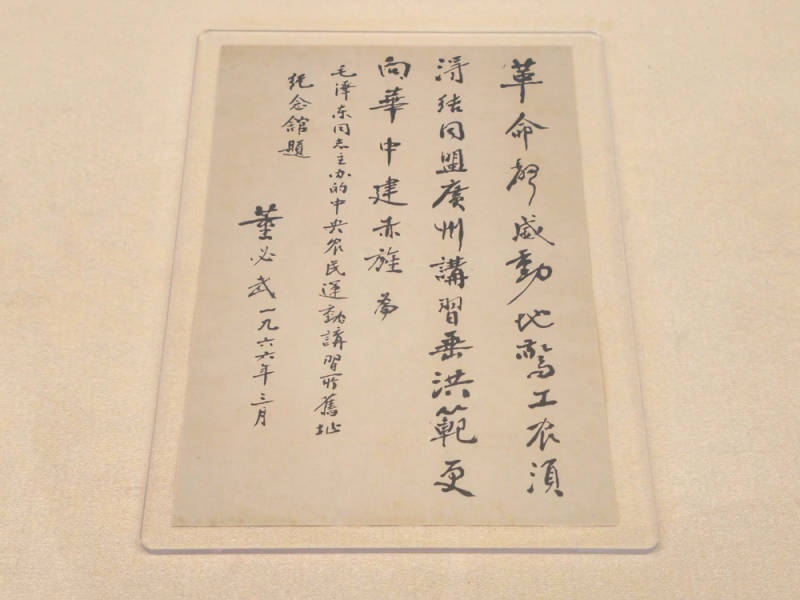 革命聲威動地驚工农須
得结同盟廣州講習垂洪範更
向華中建赤旌 為
毛泽东同志主办的中央农民運動講習所舊址
纪念館題
董必武一九六六年三月